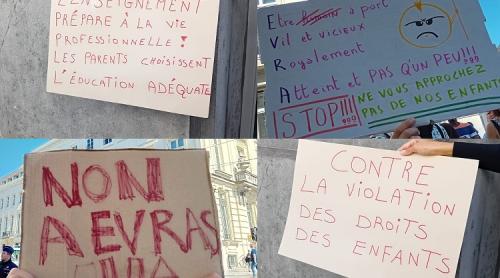 L'ENSEIGNEMENT
PRÉPARE À LA VIE
PROFESSIONNELLE !
LES PARENTS CHOISISSENT
L'ÉDUCATION ADÉQUATE
Etre Humain à part
Vil et vicieux
Royalement
Atteint et PAS QU'UN PEU!!!
STOP!!!!
NE VOUS APPROCHEZ
PAS DE NOS ENFANTS
NON
A EVRAS
CONTRE
LA VIOLATION
DES DROITS
DES ENFANTS